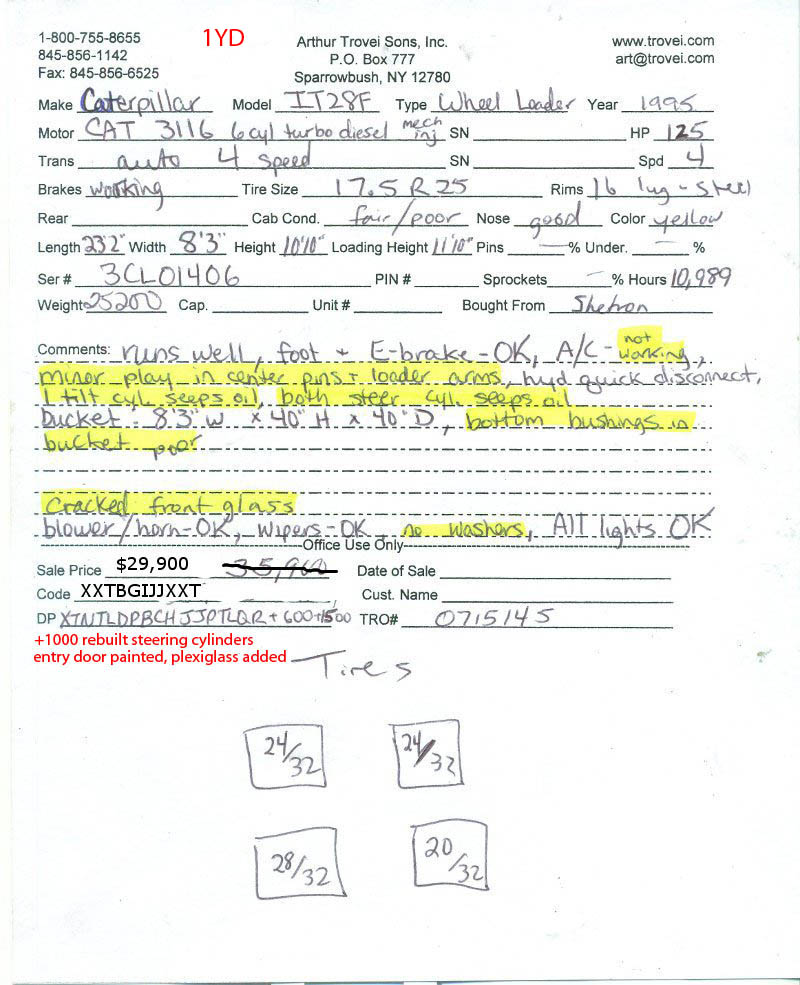 1-800-755-8655 1YD Arthur Trovei Sons, Inc. www.trovei.com
845-856-1142 P.O. Box 777 art@trovei.com
Fax: 845-856-6525 Sparrowbush, NY 12780
Make Caterpillar Model IT28F Type Wheel Loader Year 1995
Motor CAT 3116 6cyl turbo diesel mech inj SN HP 125
Trans auto 4 speed SN Spd 4
Brakes working Tire Size 17.5 R 25 Rims 16 lug - steel
Rear Cab Cond. fair/poor Nose good Color yellow
Length 23'2" Width 8'3" Height 10'10" Loading Height 11'10" Pins — % Under. — %
Ser # 3CL01406 PIN # Sprockets — % Hours 10,989
Weight 25200 Cap. Unit # Bought From
Comments: runs well, foot + E-brake-OK, A/C - not working,
minor play in center pins + loader arms, hyd quick disconnect,
1 tilt cyl seeps oil, both steer cyl. seeps oil
bucket: 8'3" W x 40" H x 40" D, bottom bushings in
bucket poor
Cracked front glass
blower/horn-OK, wipers-OK, no washers, All lights OK
Office Use Only
Sale Price $29,900 35,900 Date of Sale
Code XXTBGIJJXXT Cust. Name
DP XTNTLDPBCHJJPTLQR + 600+1500 TRO# 0715145
+1000 rebuilt steering cylinders
entry door painted, plexiglass added
Tires
24/32 24/32
28/32 20/32